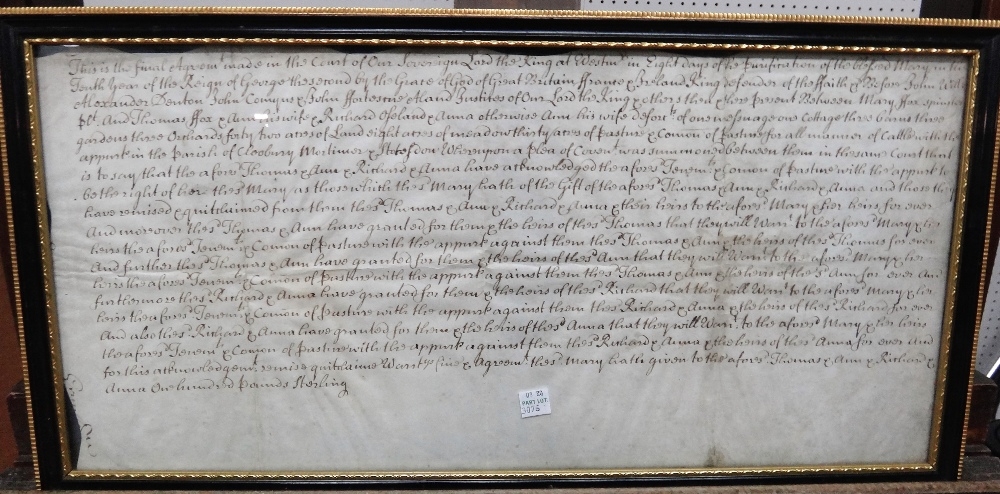 This is the final Agreemt made in the Court of Our Sovereign Lord the King at Westmr in Eight days of the Purification of the blessed Mary in the
Tenth Year of the Reign of George the second by the Grace of God of Great Britain ffrance & Ireland King defender of the faith &c Before John
Alexander Denton John Comyns & John ffortescue Aland Justices of Our Lord the King & others then & there Present Between Mary ffox spinster
plt. And Thomas ffox & Ann his wife & Richard & Anna otherwise Ann his wife deforcts of one messuage one Cottage three Barns three
gardens three Orchards forty two acres of Land eight acres of meadow thirty acres of Pasture & Comon of Pasture for all manner of Cattle with the
appurts in the Parish of Cleobury Mortimer & Stotesdon Whereupon a Plea of Covent was summoned between them in the same Court that
is to say that the aforesd Thomas & Ann & Richard & Anna have acknowledged the aforesd Tenemts & Comon of Pasture with the appurts to
be the right of her the sd Mary as those which the sd Mary hath of the Gift of the aforesd Thomas & Ann & Richard & Anna and those they
have remised & quitclaimed from them the sd Thomas & Ann & Richard & Anna & their heirs to the aforesd Mary & her heirs for ever
And moreover the sd Thomas & Ann have granted for them & the heirs of the sd Thomas that they will Warrt to the aforesd Mary & her
heirs the aforesd Tenemts & Comon of Pasture with the appurts against them the sd Thomas & Ann & the heirs of the sd Thomas for ever
And further the sd Thomas & Ann have granted for them & the heirs of the sd Ann that they will Warrt to the aforesd Mary & her
heirs the aforesd Tenemts & Comon of Pasture with the appurts against them the sd Thomas & Ann & the heirs of the sd Ann for ever And
furthermore the sd Richard & Anna have granted for them & the heirs of the sd Richard that they will Warrt to the aforesd Mary & her
heirs the aforesd Tenemts & Comon of Pasture with the appurts against them the sd Richard & Anna & the heirs of the sd Richard for ever
And also the sd Richard & Anna have granted for them & the heirs of the sd Anna that they will Warrt to the aforesd Mary & her heirs
the aforesd Tenemts & Comon of Pasture with the appurts against them the sd Richard & Anna & the heirs of the sd Anna for ever And
for this acknowledgemt remise quitclaime Warrty fine & Agreemt the sd Mary hath given to the aforesd Thomas & Ann & Richard &
Anna One hundred Pounds Sterling
UT 26
PART LOT
3075